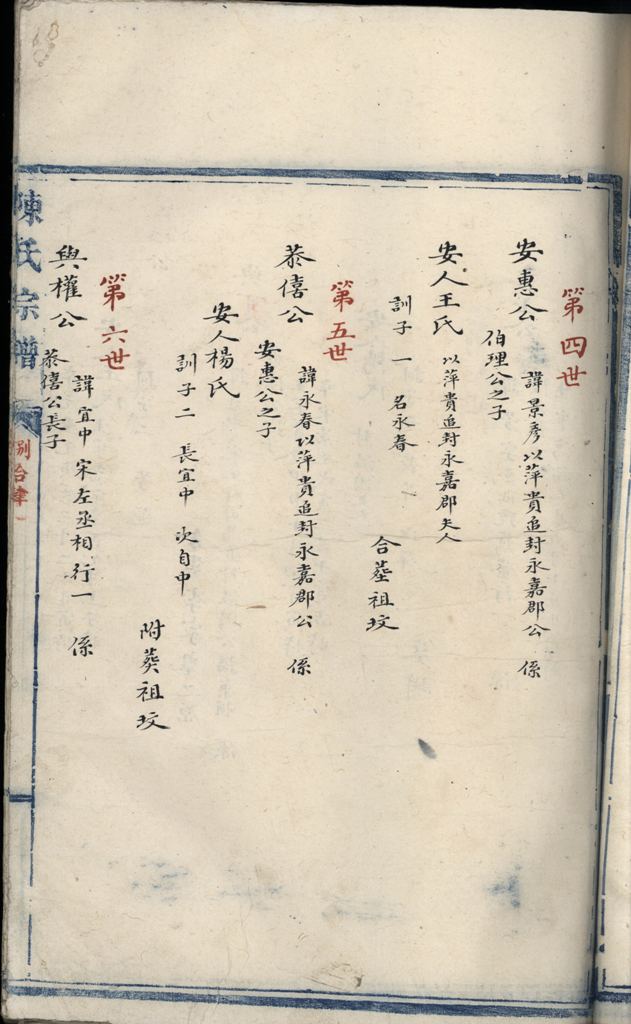 第四世
安惠公
諱景彥以萍貴追封永嘉郡公 係
伯理公之子
安人王氏 以萍貴追封永嘉郡夫人
訓子一 名永春
合塟祖坟
第五世
恭僖公
諱永春以萍貴追封永嘉郡公 係
安惠公之子
安人楊氏
訓子二 長宜中 次自中
附葬祖坟
第六世
與權公
諱宜中 宋左丞相 行一 係
恭僖公長子
陳氏宗譜